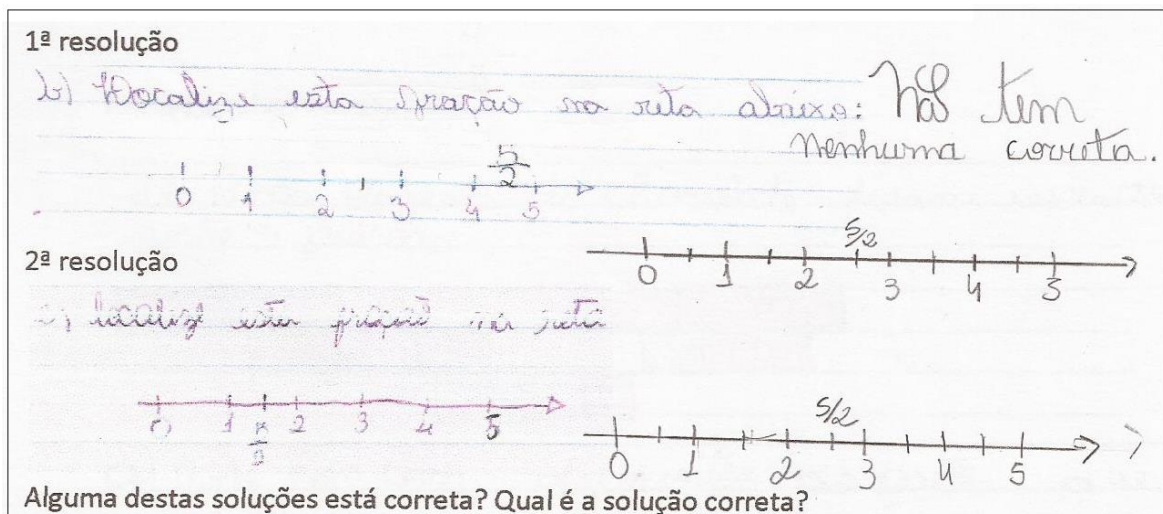 1ª resolução
b) Localize esta fração na reta abaixo:
Não tem
nenhuma correta.
5/2
0 1 2 3 4 5
5/2
0 1 2 3 4 5
2ª resolução
c) localize esta fração na reta
0 1 2 3 4 5
5/2
0 1 2 3 4 5
Alguma destas soluções está correta? Qual é a solução correta?